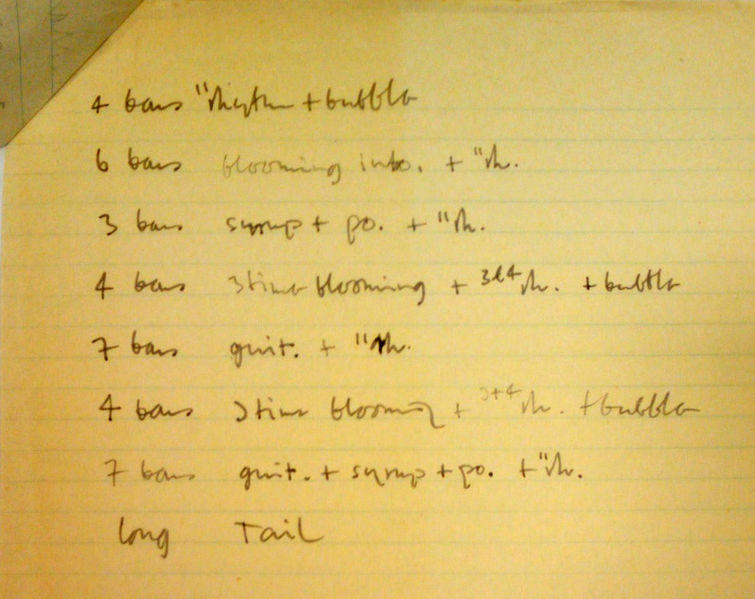 4 bars "rhythm + bubble
6 bars blooming intro. + "rh.
3 bars syrup + po. + "rh.
4 bars 3time blooming + 3&4 rh. + bubble
7 bars guit. + "rh.
4 bars 3time blooming + 3+4 rh. + bubble
7 bars guit. + syrup + po. + "rh.
long Tail